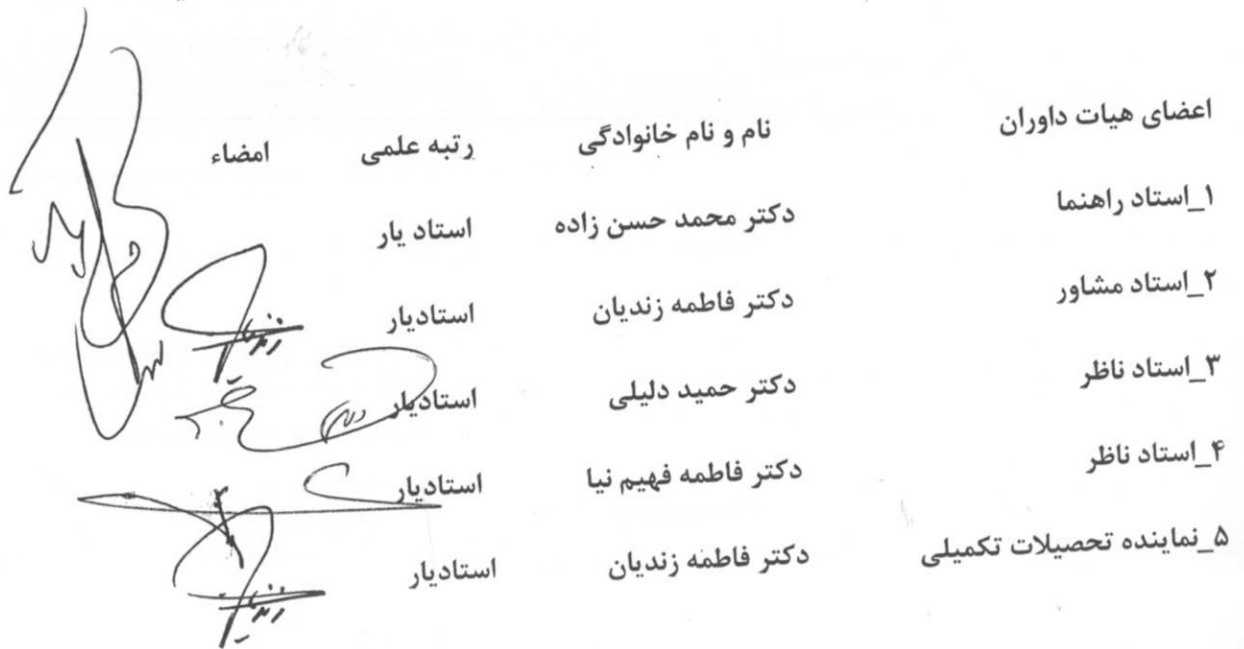 اعضای هیات داوران نام و نام خانوادگی رتبه علمی امضاء
۱_استاد راهنما دکتر محمد حسن زاده استاد یار
۲_استاد مشاور دکتر فاطمه زندیان استادیار
۳_استاد ناظر دکتر حمید دلیلی استادیار
۴_استاد ناظر دکتر فاطمه فهیم نیا استادیار
۵_نماینده تحصیلات تکمیلی دکتر فاطمه زندیان استادیار